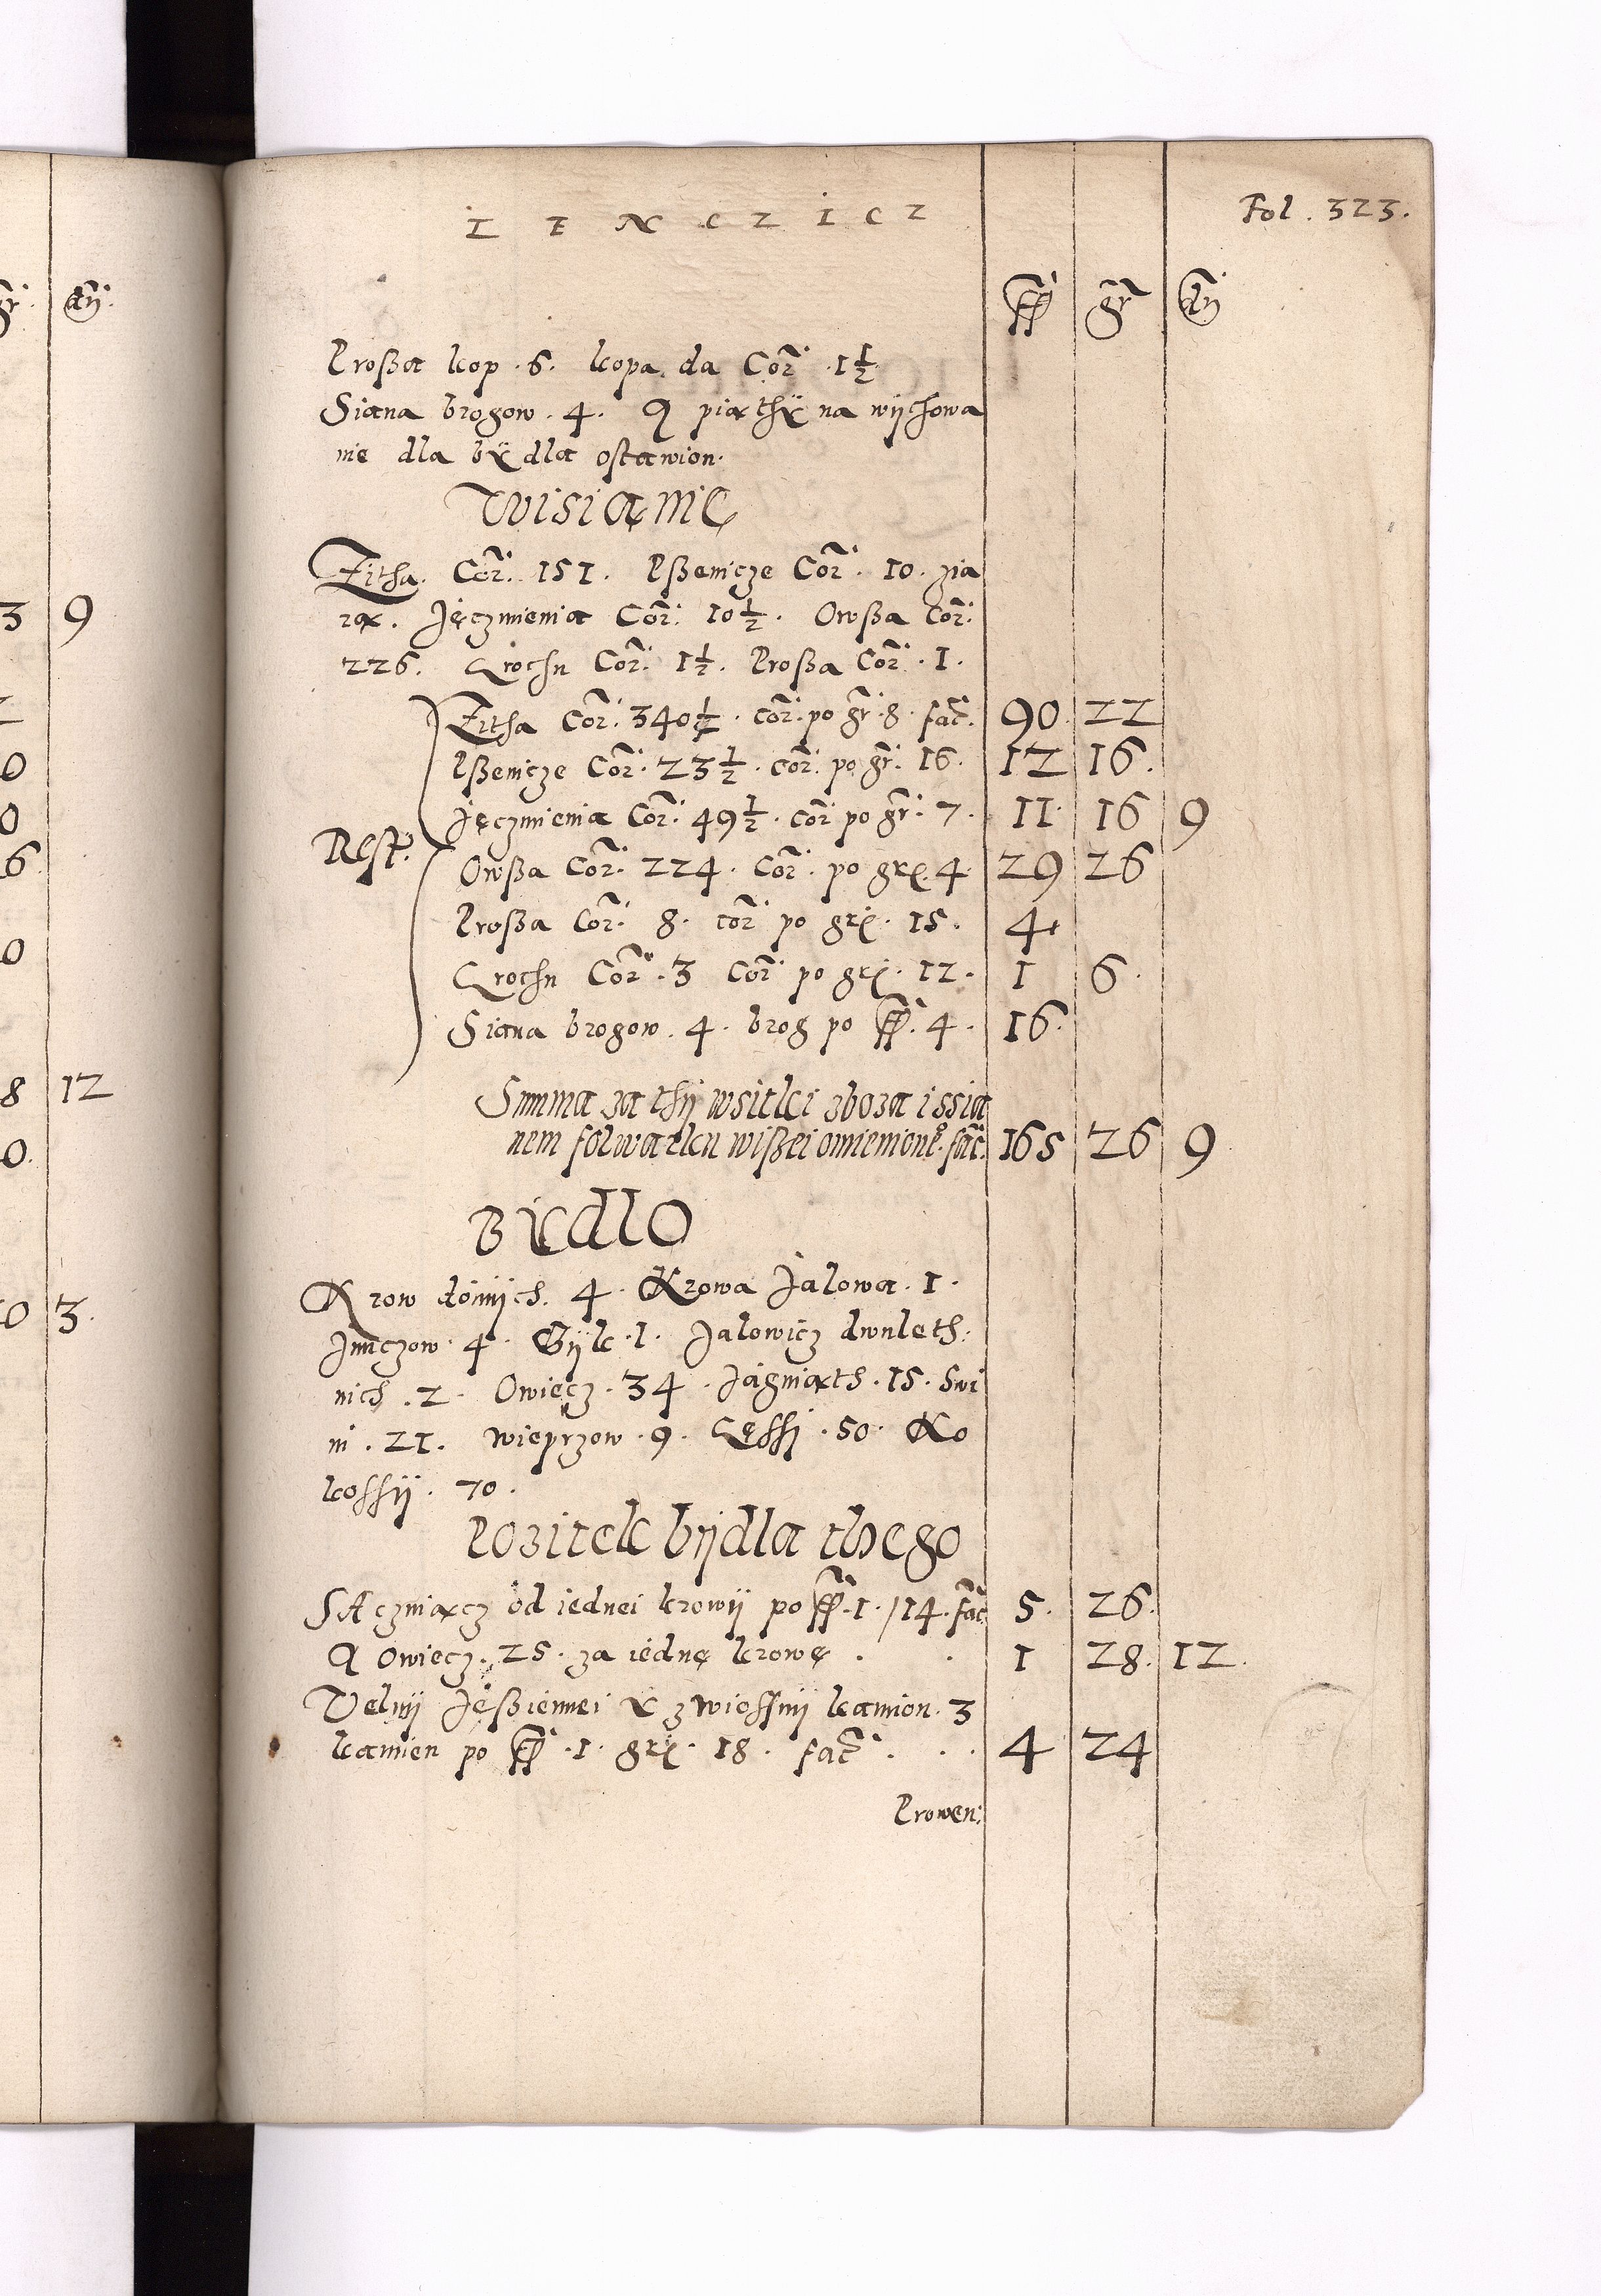 IENCZICZ
Fol. 323.
ff gr dn
Proßa kop. 6. kopa da Cor. 1½
Siana brogow. 4. A piąthÿ na wÿchowa
nie dla bÿdla ostawion.
Wisianie
Zitha. Cor. 151. Pßenicze Cor. 10. zia
rą. Jęczmienia Cor. 10½. Owßa Cor.
226. Grochu Cor. 1½. Proßa Cor. 1.
Zitha Cor. 340½. cor. po gr. 8. fac. 90. 22
Pßenicze Cor. 23½. cor. po gr. 16. 12 16.
Jęczmienia Cor. 49½. cor po gr. 7. 11. 16 9
Rest.
Owßa Cor. 224. Cor. po grꝭ. 4 29 26
Proßa Cor. 8. cor po grꝭ. 15. 4
Grochu Cor. 3 Cor po grꝭ. 12. 1 6.
Siana brogow. 4. brog po ff. 4. 16.
Summa za thÿ wsitki zboza i ssia
nem folwarku wißei omienione. fac. 165 26 9
Bÿdlo
Krow doinÿch. 4. Krowa Jalowa. 1.
Junczow. 4. Bÿk. 1. Jalowicz dwuleth:
nich. 2. Owiecz. 34. Jagniąth. 15. Swi
ni. 21. Wieprzow. 9. Gęssi. 50. Ko
kossÿ. 70.
Pozitek bÿdla thego
SA czniącz od iednei krowÿ po ff. 1. /14. fac. 5. 26.
A Owiecz. 25. za iednę krowę . . 1 28. 12.
Velnÿ Jeßiennei ÿ zwiossnÿ kamion. 3
kamien po ff. 1. grꝭ. 18. fac. . . 4 24
Prowen: